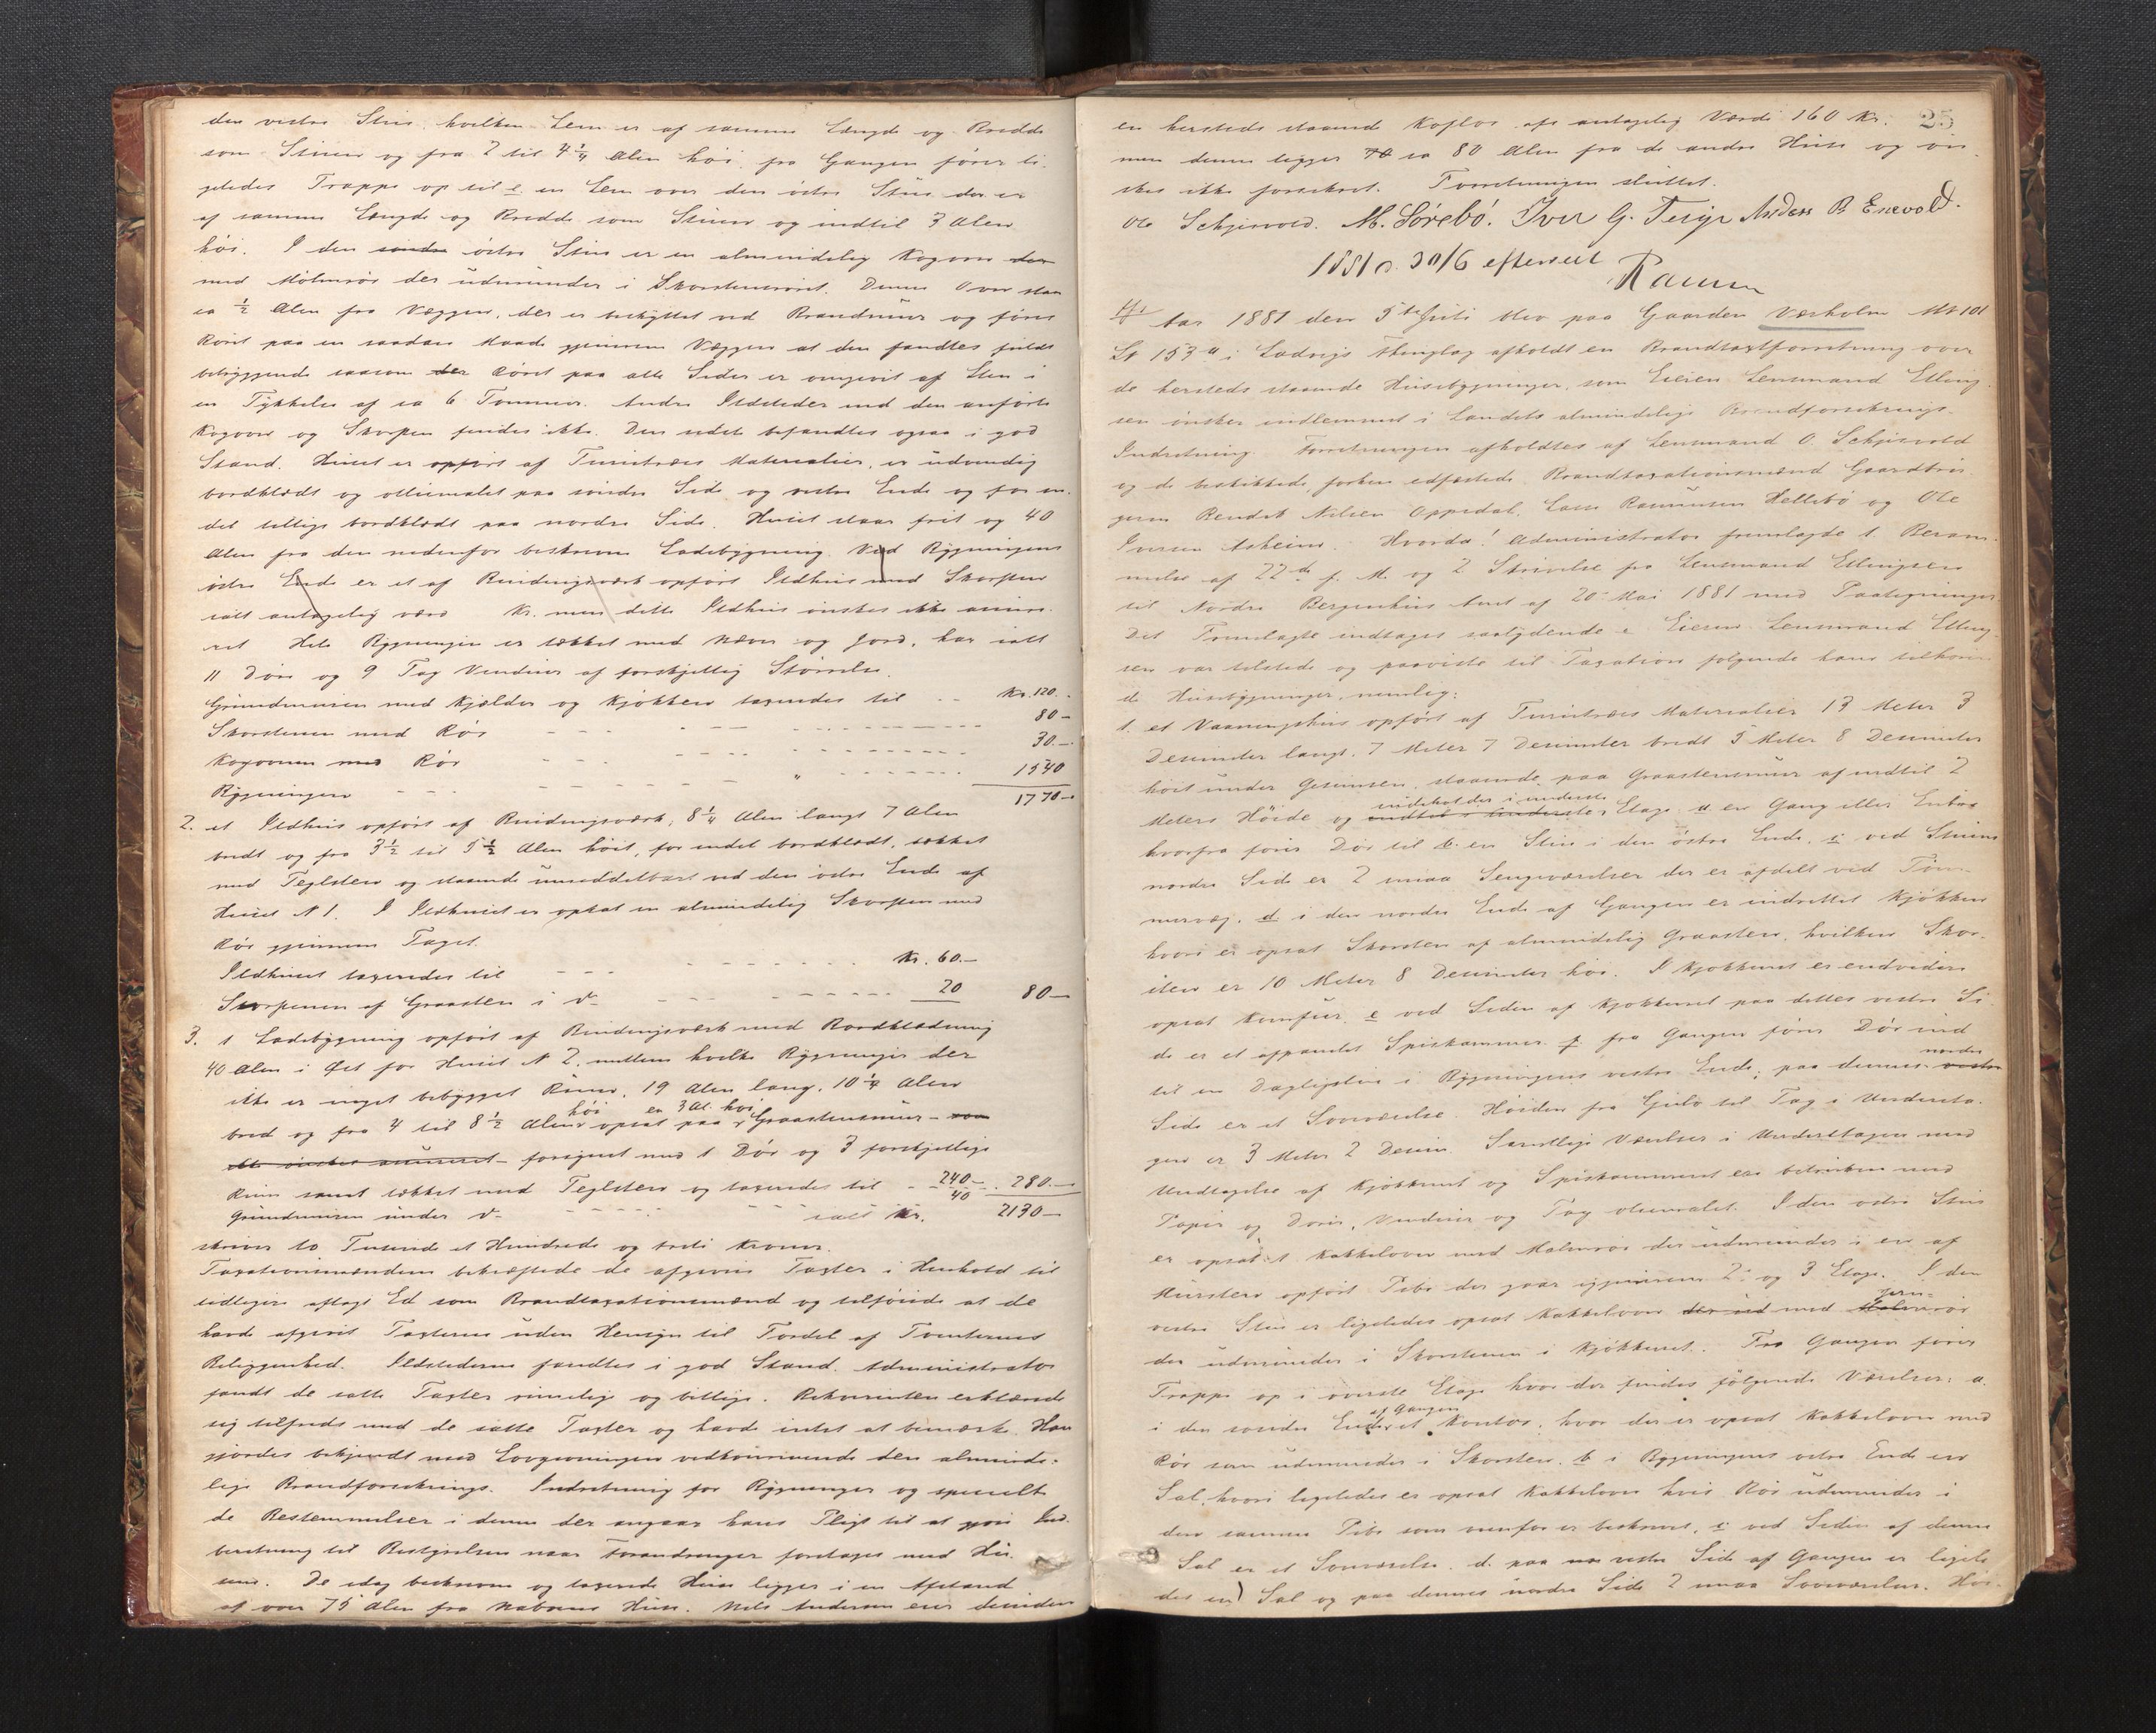 den vestre Stue. hvilken Lem er af samme Længde og Bredde
som Stuen og fra 2 til 4 1/4 Alen høi. fra Gangen fører li-
geledes Trappe op til e en Lem over den östre Stue der er
af samme Længde og Bredde som Stuen og indtil 3 Alen
höi. I den søndre östre Stue er en almindelig Kogovn der
med Malmrör der udmunder i Skorstensröret. Denne Ovn staar
ca 1/2 Alen fra Væggen, der er beskyttet ved Brandmur og föres
Röret paa en saadan Maade gjennem Væggen at den fandtes fuldt
betryggende saasom der Röret paa alle Sider er omgivet af Sten i
en Tykkelse af ca 6 Tommer. Andre Ildsteder end den anførte
Kogovn og Skorsten findes ikke. Den sidste befandtes ogsaa i god
Stand. Huset er opfört af Tømmer Materialier, er udvendig
bordklædt og oliemalet paa söndre Side og vestre Ende og for en-
del tillige bordklædt paa nordre Side. Huset staar frit og 40
Alen fra den nedenfor beskrevne Ladebygning. Ved Bygningens
östre Ende er et af Bindingsværk opfört Ildhus med Skorsten
ialt antagelig værd Kr. men dette Ildhus önskes ikke assure-
ret. Hele Bygningen er tækket med Næver og Jord, har ialt
11 Döre og 9 Fag Vinduer af forskjellig Störrelse.
Grundmuren med Kjælder og Kjøkken taxeredes til - - Kr. 120. -
Skorstenen med Rör - - - 80 -
Kogovnen med Rör - - - 30. -
Bygningen - - - " - - - 1540
1770 -
2. et Ildhus opfört af Bindingsværk, 8 1/4 Alen langt 7 Alen
bredt og fra 3 1/2 til 5 1/2 Alen höit, for endel bordklædt, tækket
med Teglsten og staaende umiddelbart ved den östre Ende af
Huset N 1. I Ildhuset er opsat en almindelig Skorsten med
Rör gjennem Taget.
Ildhuset taxeredes til - - - Kr. 60. -
Skorstenen af Graasten i do - - - 20 80 -
3. 1 Ladebygning opfört af Bindingsværk med Bordklædning
40 Alen i Öst for Huset N 2. mellem hvilke Bygninger der
ikke er noget bebygget Rum, 19 Alen lang, 10 1/4 Alen
bred og fra 4 til 8 1/2 Alen höi opsat paa en 3 Al. höi Graastensmur - som
ikke ønskes assureret - forsynet med 1 Dör og 3 forskjellige
Rum samt tækket med Teglsten og taxeredes til - 240 -
Grundmuren under do - - - 40 280. -
ialt Kr. 2130 -
skriver to Tusinde et Hundrede og treti Kroner.
Taxationsmændene bekræftede de afgivne Taxter i Henhold til
tidligere aflagt Ed som Brandtaxationsmænd og tilføiede at de
havde afgivet Taxterne uden Hensyn til Fordel af Tomternes
Beliggenhed. Ildstederne fandtes i god Stand. Administrator
fandt de satte Taxter rimelige og billige. Rekvirenten erklærede
sig tilfreds med de satte Taxter og havde intet at bemærke. Han
gjordes bekjendt med Lovgivningen vedkommende den alminde-
lige Brandforsikrings- Indretning for Bygninger og specielt
de Bestemmelser i denne der angaar hans Pligt til at gjøre Ind-
beretning til Bestyrelsen naar Forandringer foretages med Hu-
sene. De idag beskrevne og taxerede Huse ligger i en Afstand
af over 75 Alen fra Naboens Huse. Nils Andersen eier desuden
25
en hersteds staaende Koflor af antagelig Værdi 160 Kr.
men denne ligger 70 ca 80 Alen fra de andre Huse og ön-
skes ikke forsikret. Forretningen sluttet.
Ole Schjervold. M. Sörebö. Iver G. Teigr Anders B Enevold.
1881 d. 30/6 efterseet
Aar 1881 den 5te Juli blev paa Gaarden Værholm M No 101
Lb 153a i Ladvigs Thinglag afholdt en Brandtaxtforretning over
de hersteds staaende Husebygninger, som Eieren Lensmand Elling-
sen önsker indlemmet i Landets almindelige Brandforsikrings-
Indretning. Forretningen afholdtes af Lensmand O. Schjervold
og de beskikkede, forhen edfæstede Brandtaxationsmænd Gaardbru-
gerne Bendik Nilsen Oppedal, Lasse Rasmussen Hellebö og Ole
Iversen Asheim. Hvorda! Administrator fremlagde 1. Beram-
melse af 22de f. M. og 2 Skrivelse fra Lensmand Ellingsen
til Nordre Bergenhus Amt af 20 Mai 1881 med Paategninger.
Det Fremlagte indtages saalydende : Eieren Lensmand Elling-
sen var tilstede og paaviste til Taxation følgende ham tilhøren-
de Husebygninger, nemlig:
1. et Vaaningshus opfört af Tømmer Materialier 13 Meter 3
Decimeter langt. 7 Meter 7 Decimeter bredt 5 Meter 8 Decimeter
höit under Gesimsen, staaende paa Graastensmur af indtil 2
Meters Høide og indeholder i underste Etage a en Gang eller Entre
hvorfra fører Dör til b. en Stue i den östre Ende. c ved Stuens
nordre Side er 2 smaa Sengeværelser der er afdelt ved Töm-
mervæg. d i den nordre Ende af Gangen er indrettet Kjökken
hvori er opsat Skorsten af almindelig Graasten, hvilken Skor-
sten er 10 Meter 8 Decimeter höi. I Kjøkkenet er endvidere
opsat Komfur. e ved Siden af Kjøkkenet paa dettes vestre Si-
de er et afpanelet Spiskammer. f fra Gangen förer Dör ind
til en Dagligstue i Bygningens vestre Ende; paa dennes nordre
Side er et Soveværelse. Høiden fra Gulv til Tag i Undereta-
gen er 3 Meter 2 Decim. Samtlige Værelser i Underetagen med
Undtagelse af Kjøkkenet og Spiskammeret ere betrukne med
Papir og Döre, Vinduer og Tag oliemalet. I den östre Stue
er opsat 1 Kakkelovn med Malmrör der udmunder i en af
Mursten opfört Pibe der gaar igjennem 2 og 3 Etage. I den
vestre Stue er ligeledes opsat Kakkelovn der ud med jern-rör
der udmunder i Skorstenen i Kjøkkenet. Fra Gangen förer
Trappe op i øverste Etage hvor der findes fölgende Værelser: a.
i den søndre Ende af Gangen et Kontor, hvor der er opsat Kakkelovn med
Rör som udmunder i Skorsten. b i Bygningens östre Ende en
Sal hvori ligeledes er opsat Kakkelovn hvis Rör udmunder i
den samme Pibe som ovenfor er beskrevet, c ved Siden af denne
Sal er et Soveværelse. d. paa vestre Side af Gangen er ligele-
des en Sal og paa dennes nordre Side 2 smaa Soveværelser. Høi-